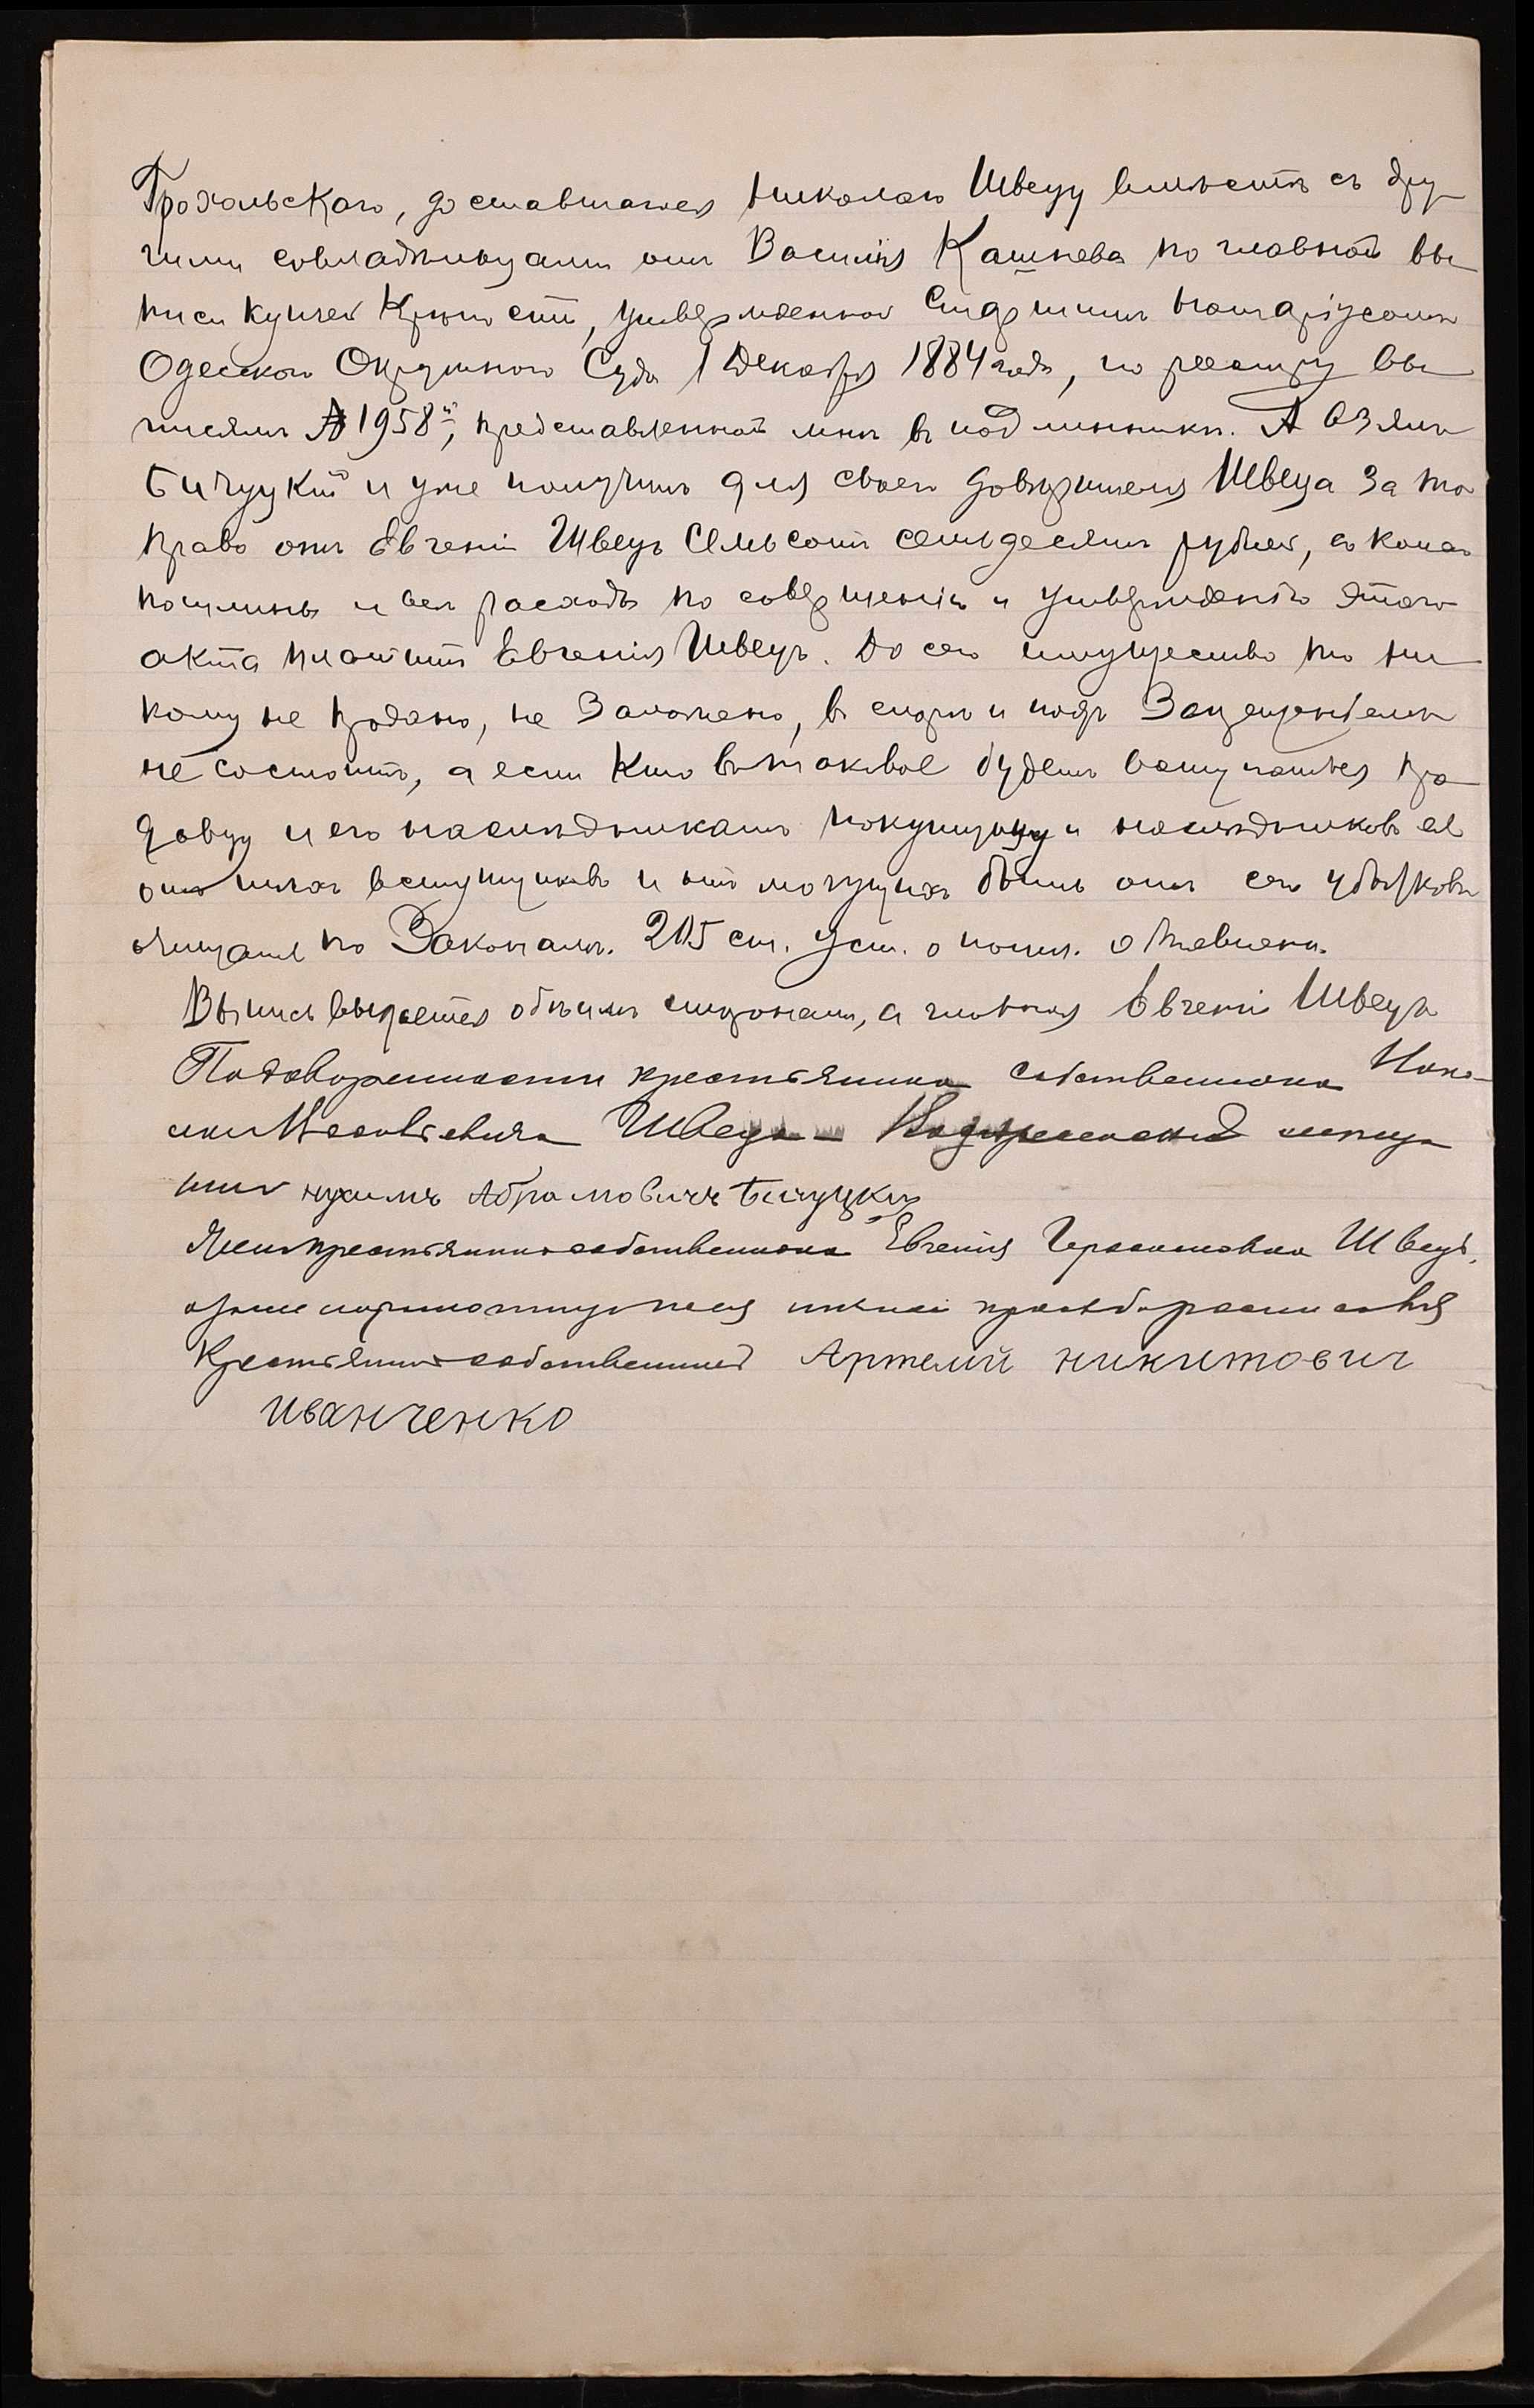 Трохольскаго, доставшагося Николаю Швецу вместе съ дру-
гими совладельцами отъ Василия Кашнева по главной вы-
писи купчей крепости, утвержденной Старшимъ Нотаріусомъ
Одесскаго Окружнаго Суда 1 Декабря 1884 года, по реестру вы-
писямъ № 1958й, представленной мне въ подлиннике. А взялъ
Бичуцкій и уже получилъ для своего доверителя Швеца за то
право отъ Евгеніи Швецъ семьсотъ семьдесятъ рублей, а
пошлины и все расходы по совершенію и утвержденію этого
акта платитъ Евгенія Швецъ. До сего имущество то ни-
кому не продано, не заложено, въ споре и подъ запрещеніемъ
не состоитъ, а если кто въ таковое будетъ вступаться про-
давцу и его наследникамъ покупщицу и наследниковъ ея
отъ техъ вступщиковъ и отъ могущихъ быть отъ сего убытковъ
очищать по Законамъ. 205 ст. Уст. о пошл. объявлена.
Выпись выдается обеимъ сторонамъ, а главная Евгеніи Швецъ
По доверенности крестьянина собственника Нико-
лая Швеца
Нухимъ Абрамовичъ Бичуцкій
крестьянинъ собственникъ Евгенія Герасимовна Швецъ,
Крестьянинъ собственникъ Артемий Никитович
Иванченко